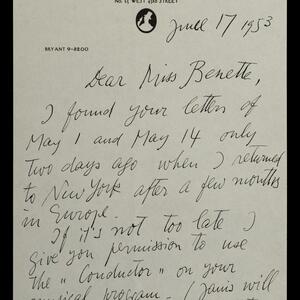 No. 15 WEST 43rd STREET
June 17 1953
BRYANT 9-8800
Dear Miss Benette,
I found your letters of
May 1 and May 14 only
two days ago when I returned
to New York after a few months
in Europe.
If it's not too late I
give you permission to use
the "Conductor" on your
musical program. (Janis will